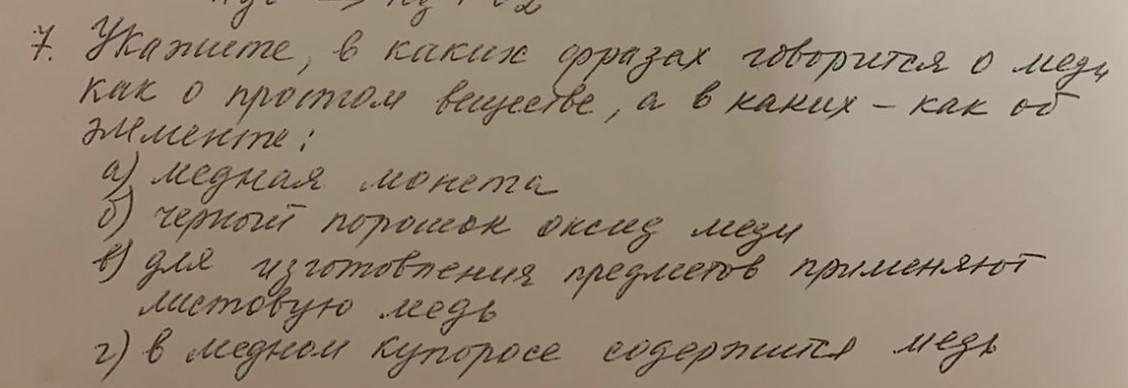 7. Укажите, в каких фразах говорится о меди
как о простом веществе, а в каких – как об
элементе:
а) медная монета
б) черный порошок оксид меди
в) для изготовления предметов применяют
листовую медь
г) в медном купоросе содержится медь